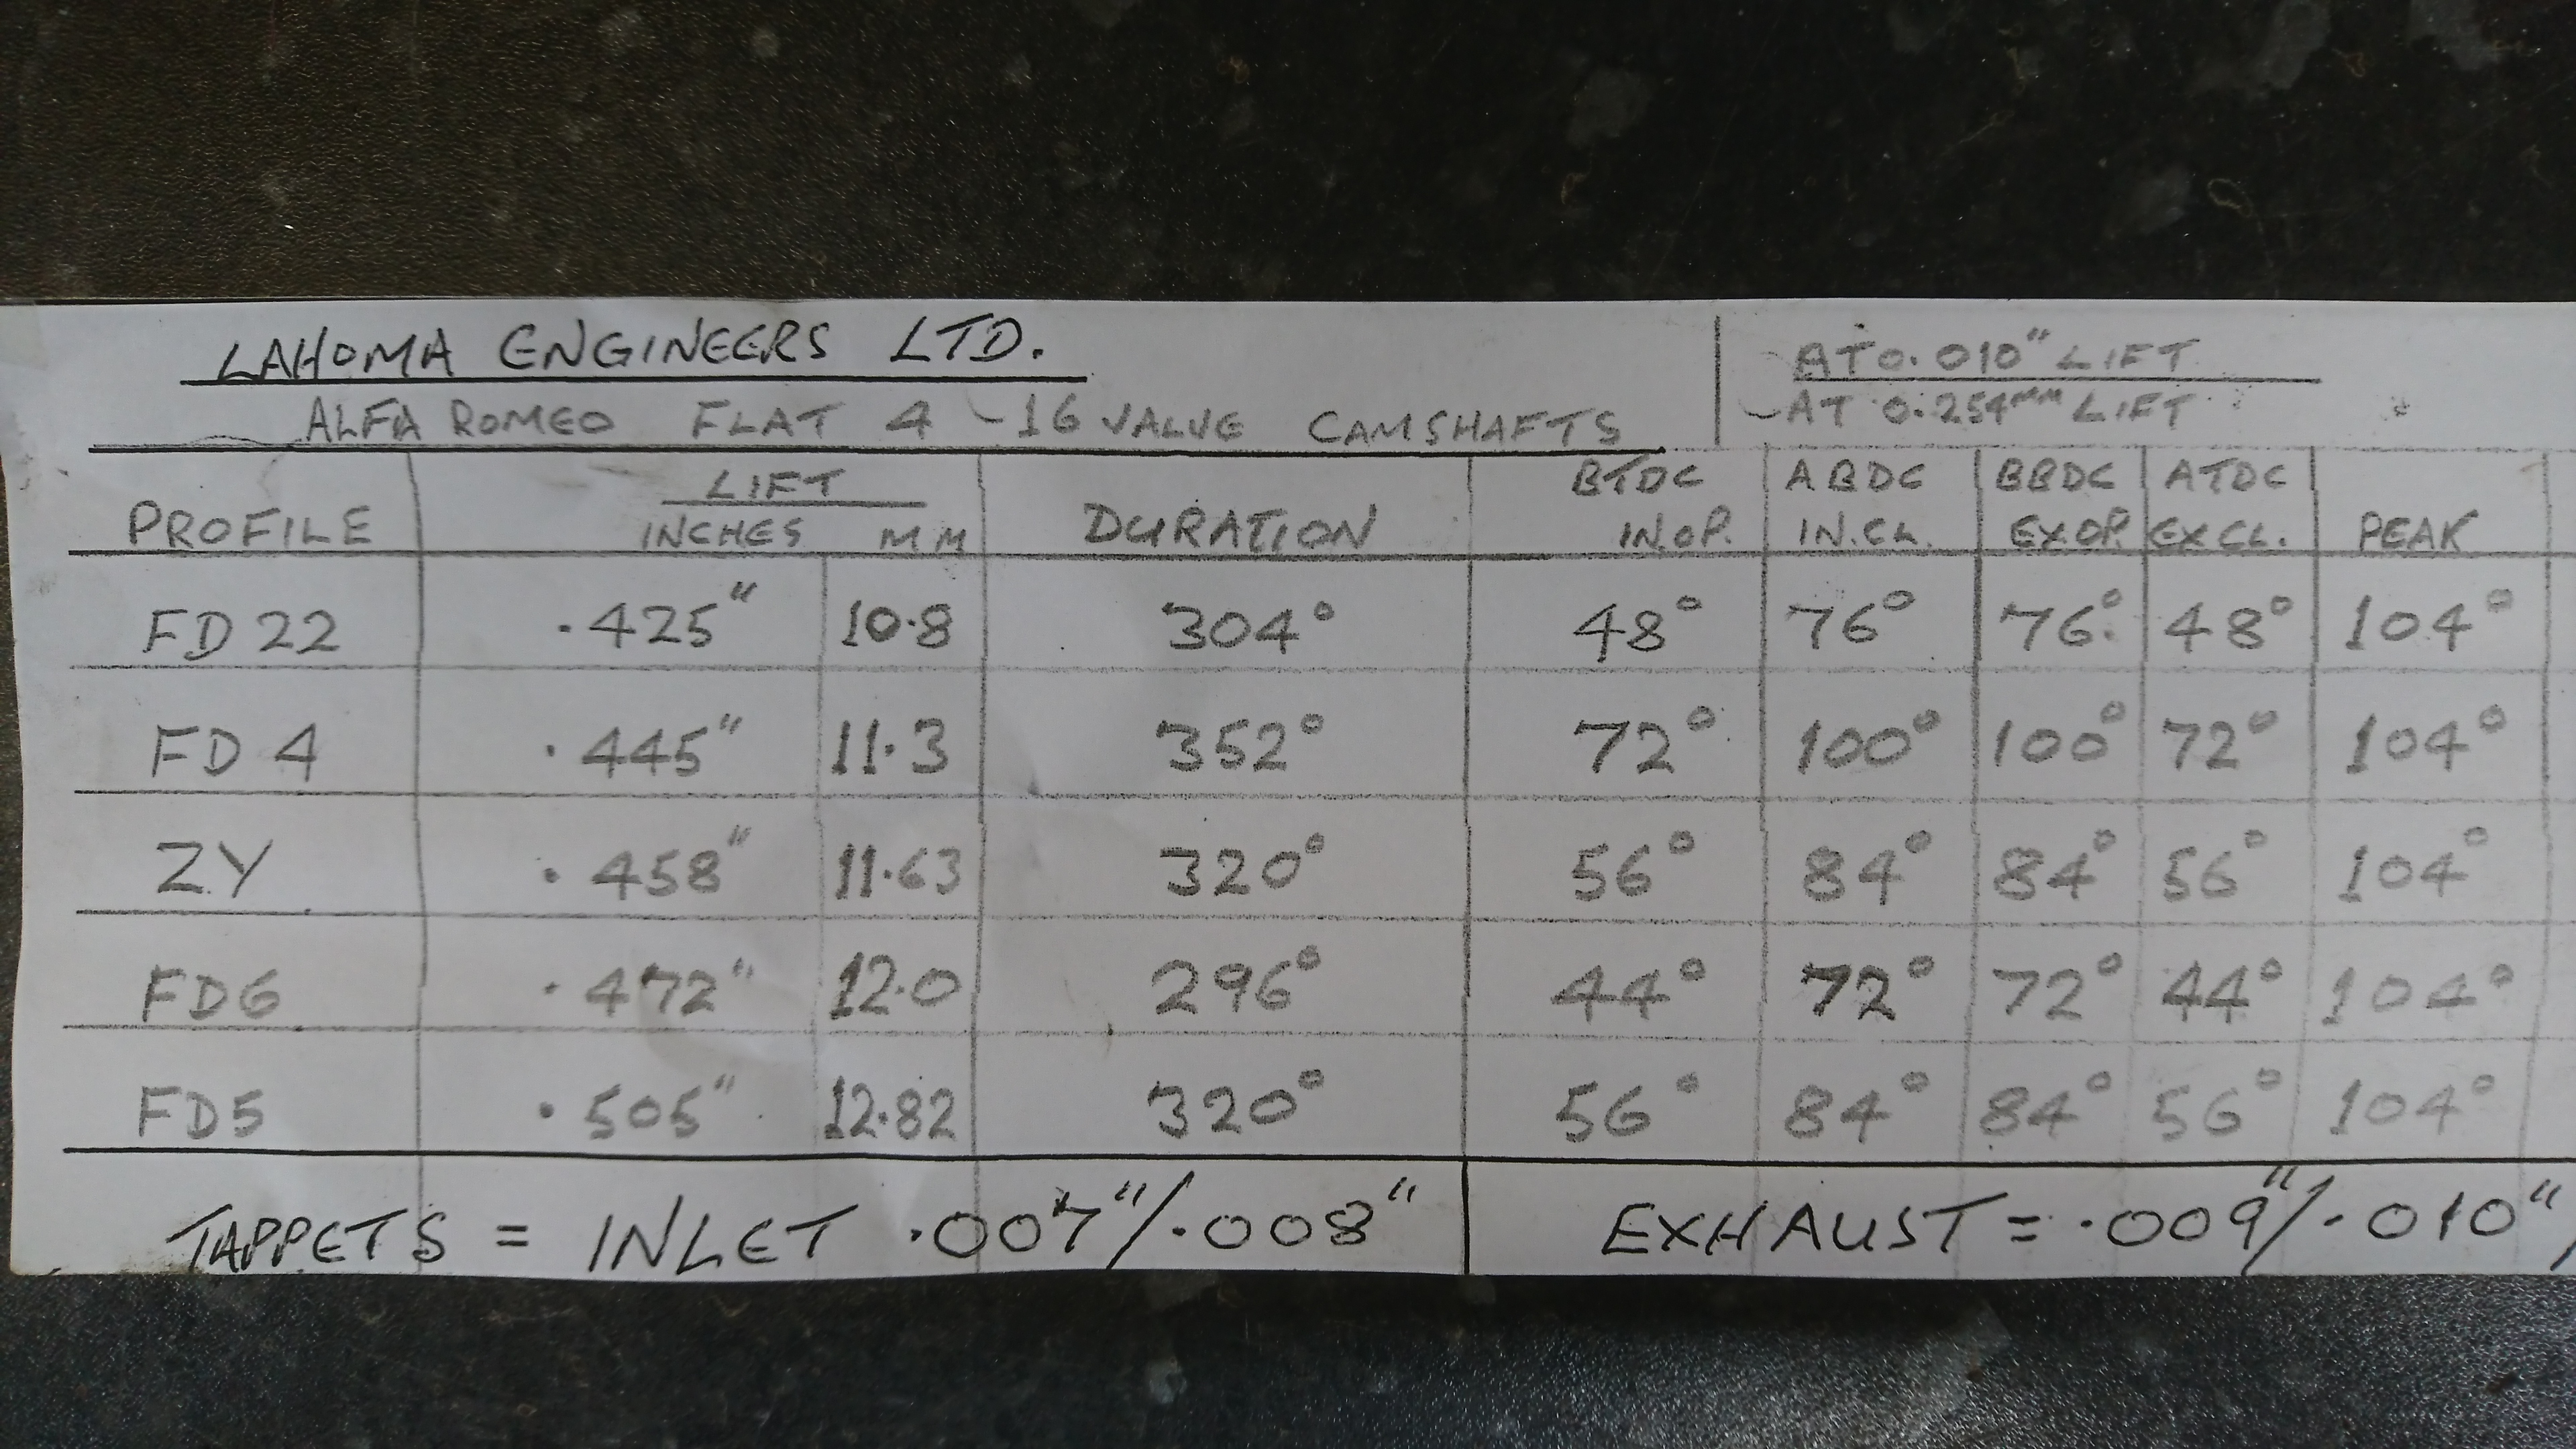 LAHOMA ENGINEERS LTD.
AT 0.010" LIFT
ALFA ROMEO FLAT 4 - 16 VALVE CAMSHAFTS
- AT 0.254mm LIFT
PROFILE LIFT INCHES MM DURATION BTDC IN.OP. ABDC IN.CL. BBDC EX.OP. ATDC EX CL. PEAK
FD 22 .425" 10.8 304° 48° 76° 76° 48° 104°
FD 4 .445" 11.3 352° 72° 100° 100° 72° 104°
ZY .458" 11.63 320° 56° 84° 84° 56° 104°
FD6 .472" 12.0 296° 44° 72° 72° 44° 104°
FD5 .505" 12.82 320° 56° 84° 84° 56° 104°
TAPPETS = INLET .007"/.008" EXHAUST = .009"/.010"